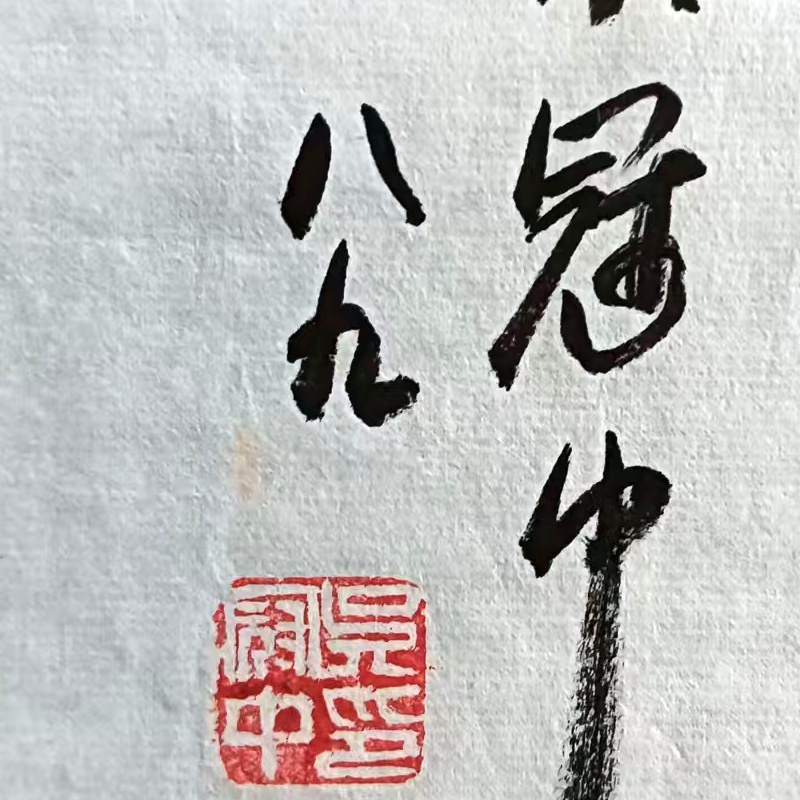 冠中
八九
吴冠中印